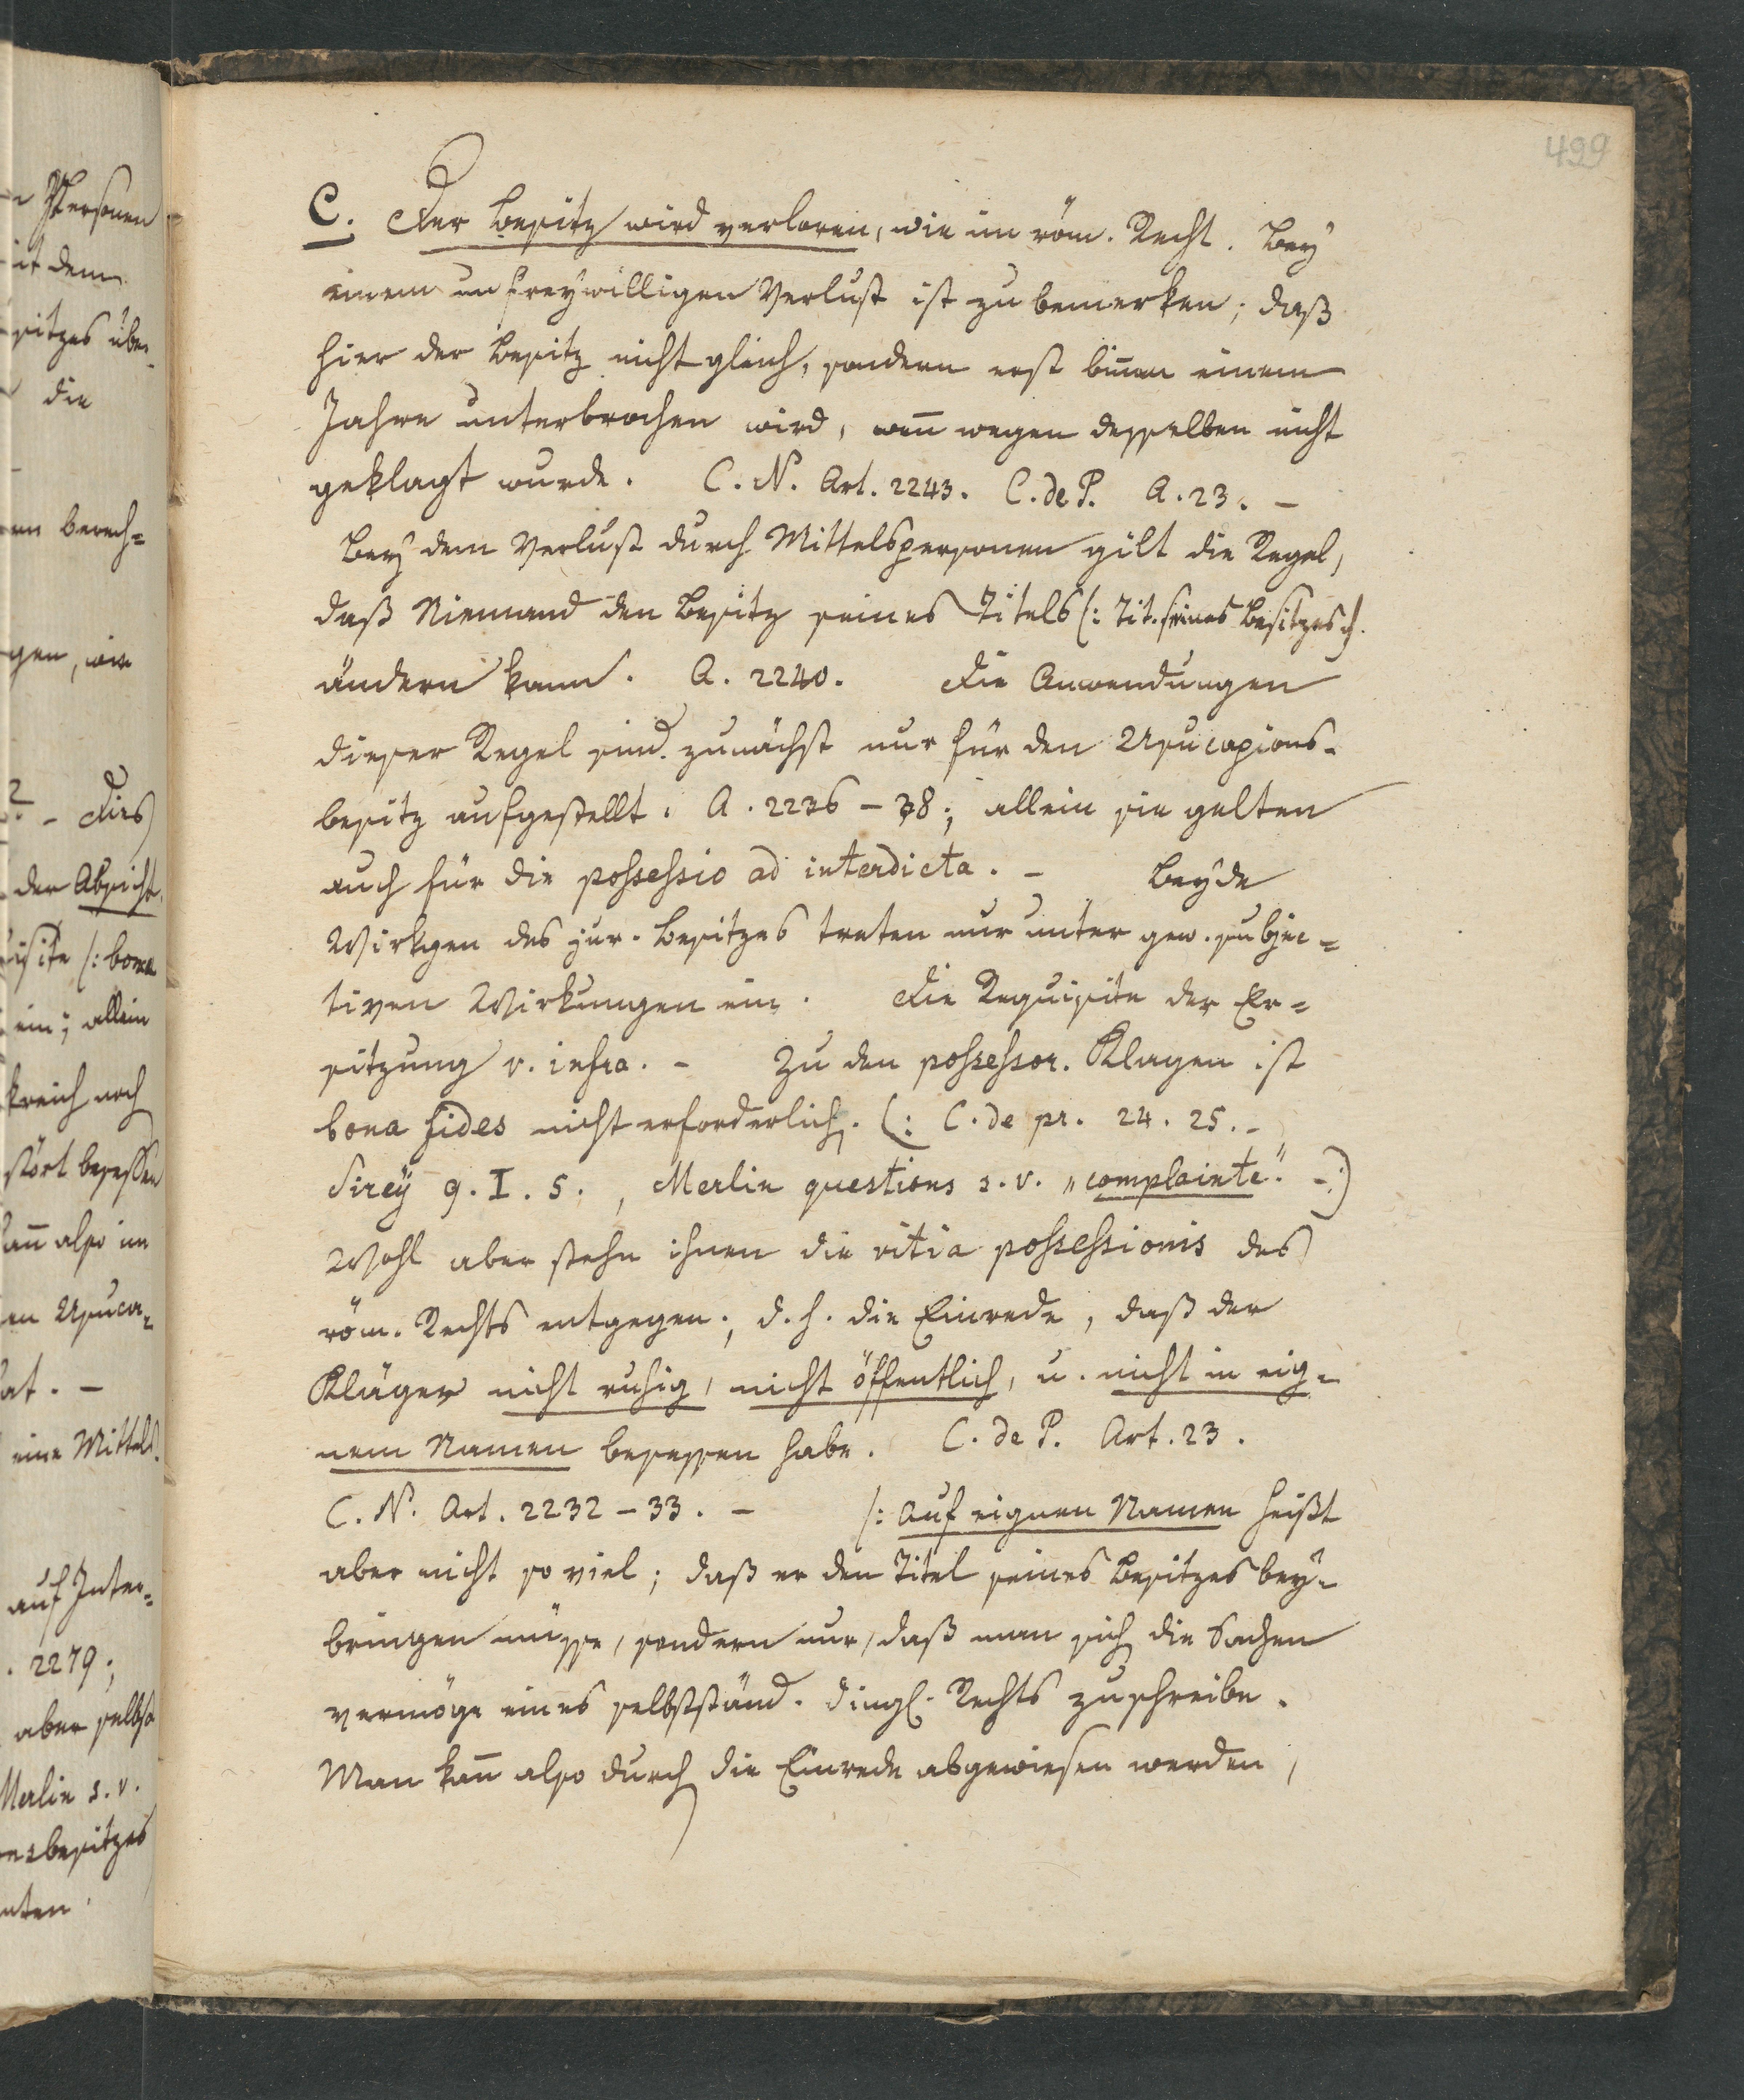 499
C. Der Besitz wird verloren, wie im röm. Recht. Bey
einem unfreywilligen Verlust ist zu bemerken; daß
hier der Besitz nicht gleich, sondern erst binnen einem
Jahre unterbrochen wird, wenn wegen desselben nicht
geklagt wurde. C. N. Art. 2243. C. de P. A. 23. –
Bey dem Verlust durch Mittelspersonen gilt die Regel,
daß Niemand den Besitz seines Titels (: Tit. seines Besitzes :)
ändern kann. A. 2240. Die Anwendungen
dieser Regel sind zunächst nur für den Usucapions-
besitz aufgestellt. A. 2236 – 38; allein sie gelten
auch für die possessio ad interdicta. – Beyde
Wirkgen des jur. Besitzes treten nur unter gew. subjec=
tiven Wirkungen ein. Die Requisite der Er=
sitzung v. infra. – Zu den possessor. Klagen ist
bona fides nicht erforderlich. (: C. de pr. 24. 25. –
Sirey 9. I. 5., Merlin questions s. v. „complainte“. – :)
Wohl aber stehn ihnen die vitia possessionis des
röm. Rechts entgegen; d. h. die Einrede, daß der
Kläger nicht ruhig, nicht öffentlich, u. nicht in eig-
nem Namen besessen habe. C. de P. Art. 23.
C. N. Art. 2232 – 33. – (: Auf eignen Namen heißt
aber nicht so viel; daß er den Titel seines Besitzes bey-
bringen müsse, sondern nur, daß man sich die Sachen
vermöge eines selbstständ. dingl. Rechts zuschreibe.
Man kann also durch die Einrede abgewiesen werden,
Personen
it dem
sitzes über
die
en berech=
gen, wie
– Dies
der Absicht
isite (: bona
ein; allein
kreich noch
stört besessen
kann also im
en Usuca=
at. –
eine Mittels
auf Inter=
. 2279;
aber selbst
Merlin s. v.
esbesitzes
nten.